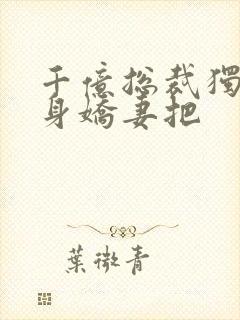 千億总裁獨
身嬌妻把
葉微青